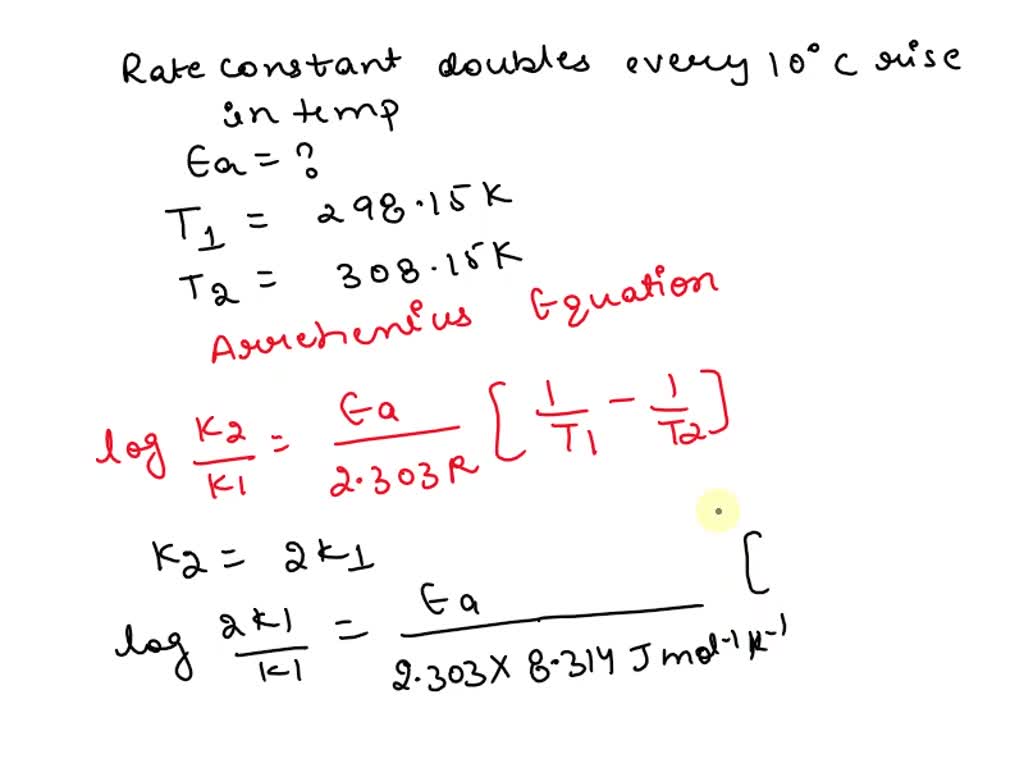 Rate constant doubles every 10°C rise
in temp
Ea = ?
T1 = 298.15K
T2 = 308.15K
Arrehenius Equation
log K2/K1 = Ea/2.303R [1/T1 - 1/T2]
K2 = 2K1
log 2K1/K1 = Ea/2.303 X 8.314 J mol-1 K-1 [